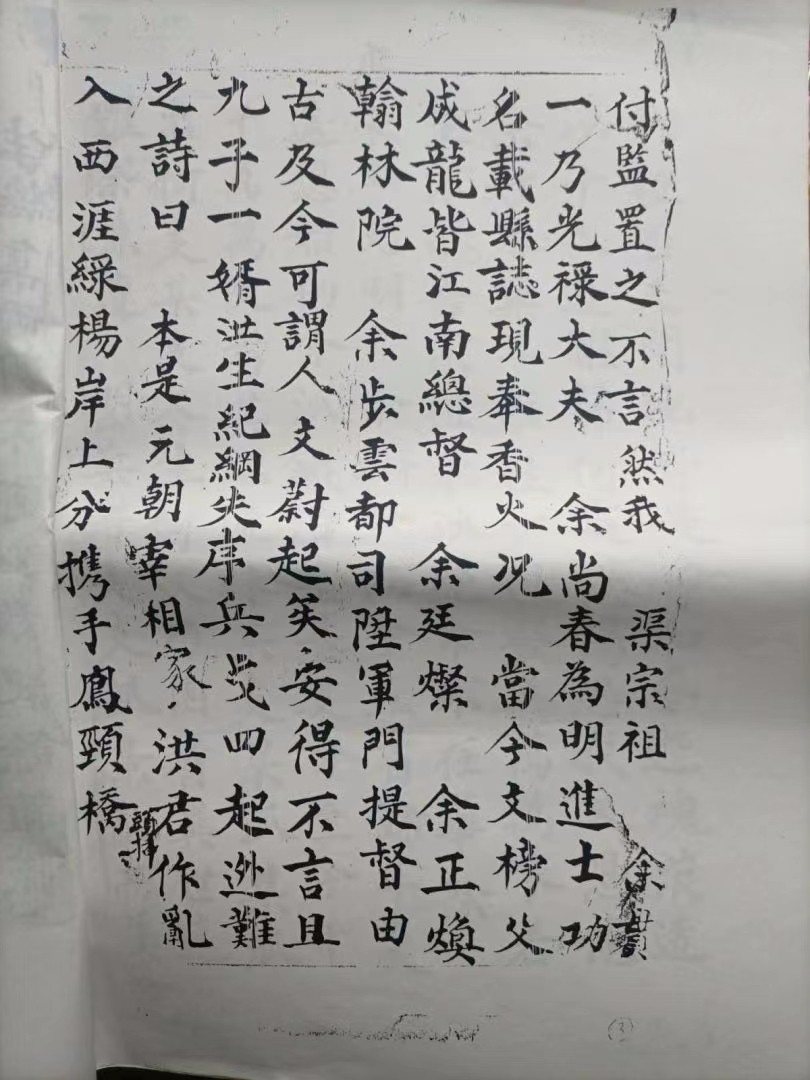 付監置之不言然我　渠宗祖　余貫
一乃光祿大夫　余尚春為明進士功
名載縣誌現奉香火况　當今文榜父
成龍皆江南總督　余廷燦　余正煥
翰林院　余步雲都司陞軍門提督由
古及今可謂人文蔚起矣安得不言且
九子一婿迯生紀綱失序兵戈四起迯難
之詩曰　本是元朝宰相家洪君作亂
入西涯綠楊岸上分携手鳳頸橋
頭
③